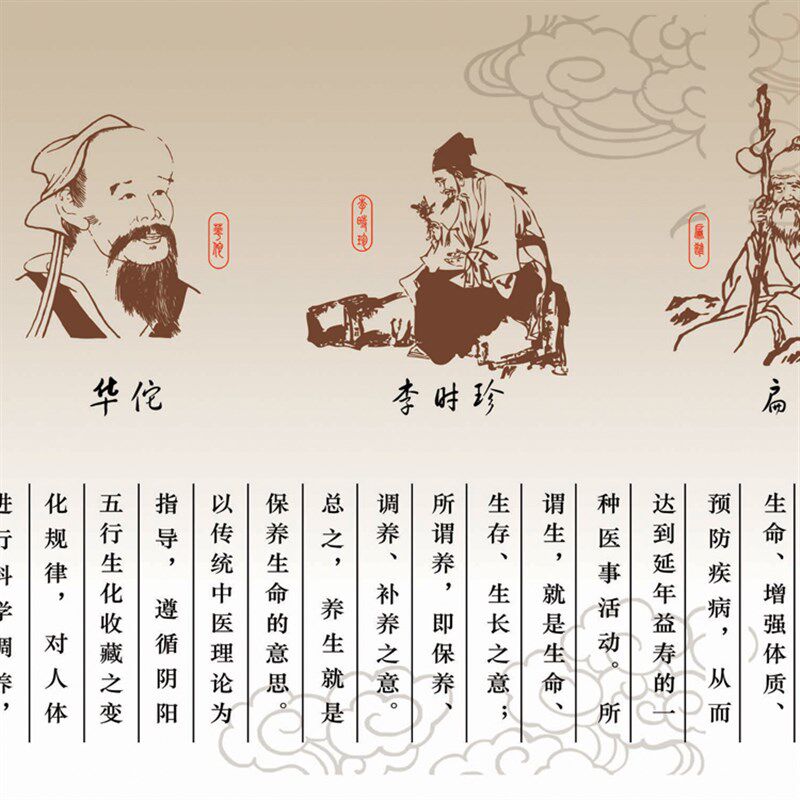 华佗
李时珍
扁
華佗
李時珍
扁鵲
生命、增强体质、
预防疾病，从而
达到延年益寿的一
种医事活动。所
谓生，就是生命、
生存、生长之意；
所谓养，即保养、
调养、补养之意。
总之，养生就是
保养生命的意思。
以传统中医理论为
指导，遵循阴阳
五行生化收藏之变
化规律，对人体
进行科学调养，